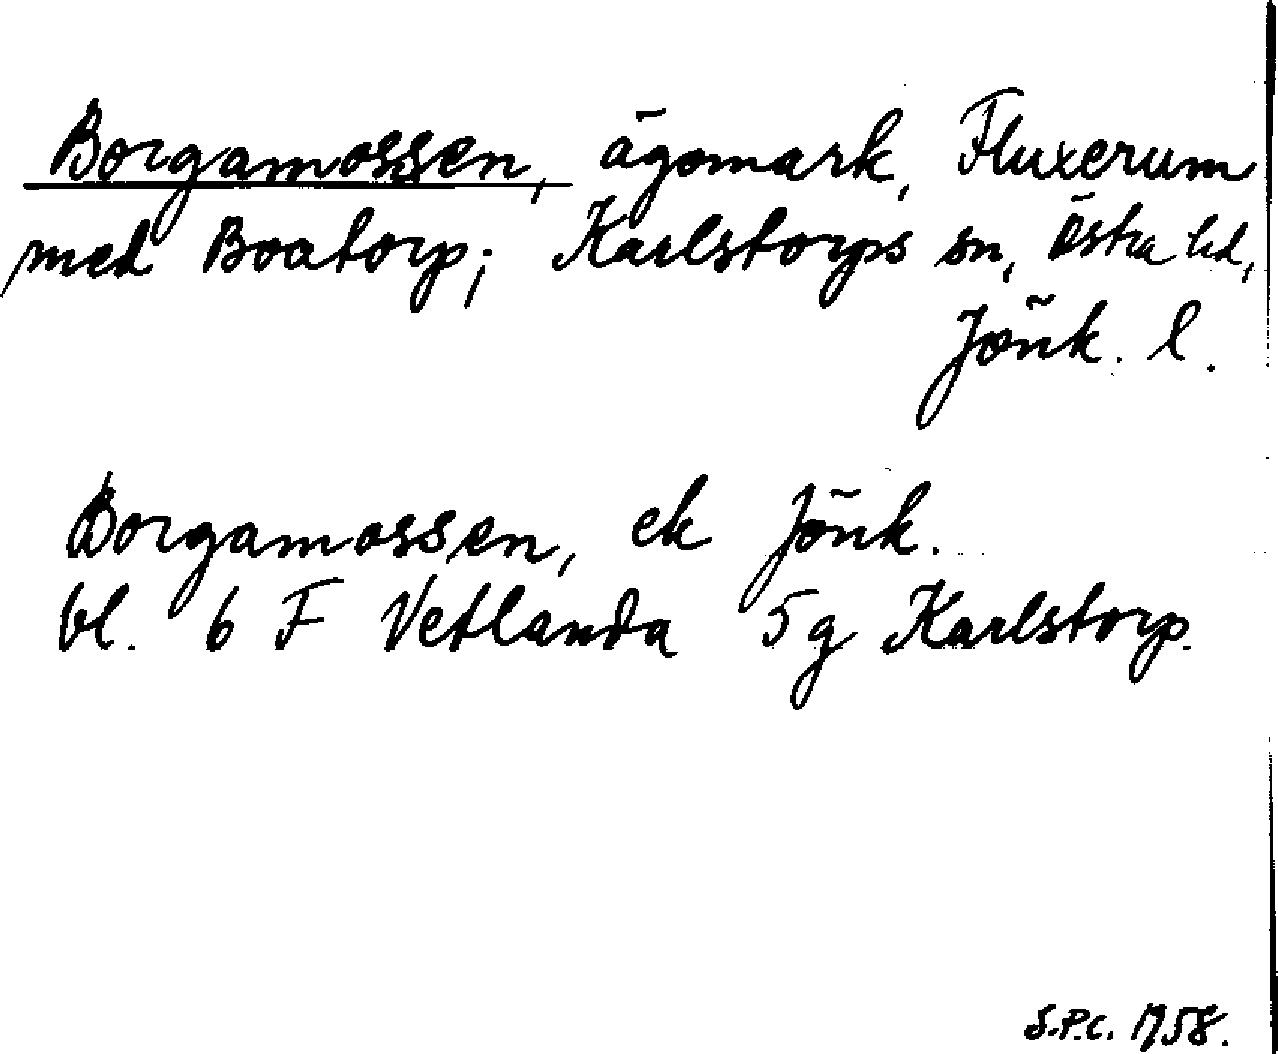 Borgamossen, ägomark, Fluxerum
med Boatorp; Karlstorps sn, Östra hd,
Jönk. l.
Borgamossen, ek Jönk.
bl. 6 F Vetlanda 5g Karlstorp.
S.P.C. 1958.